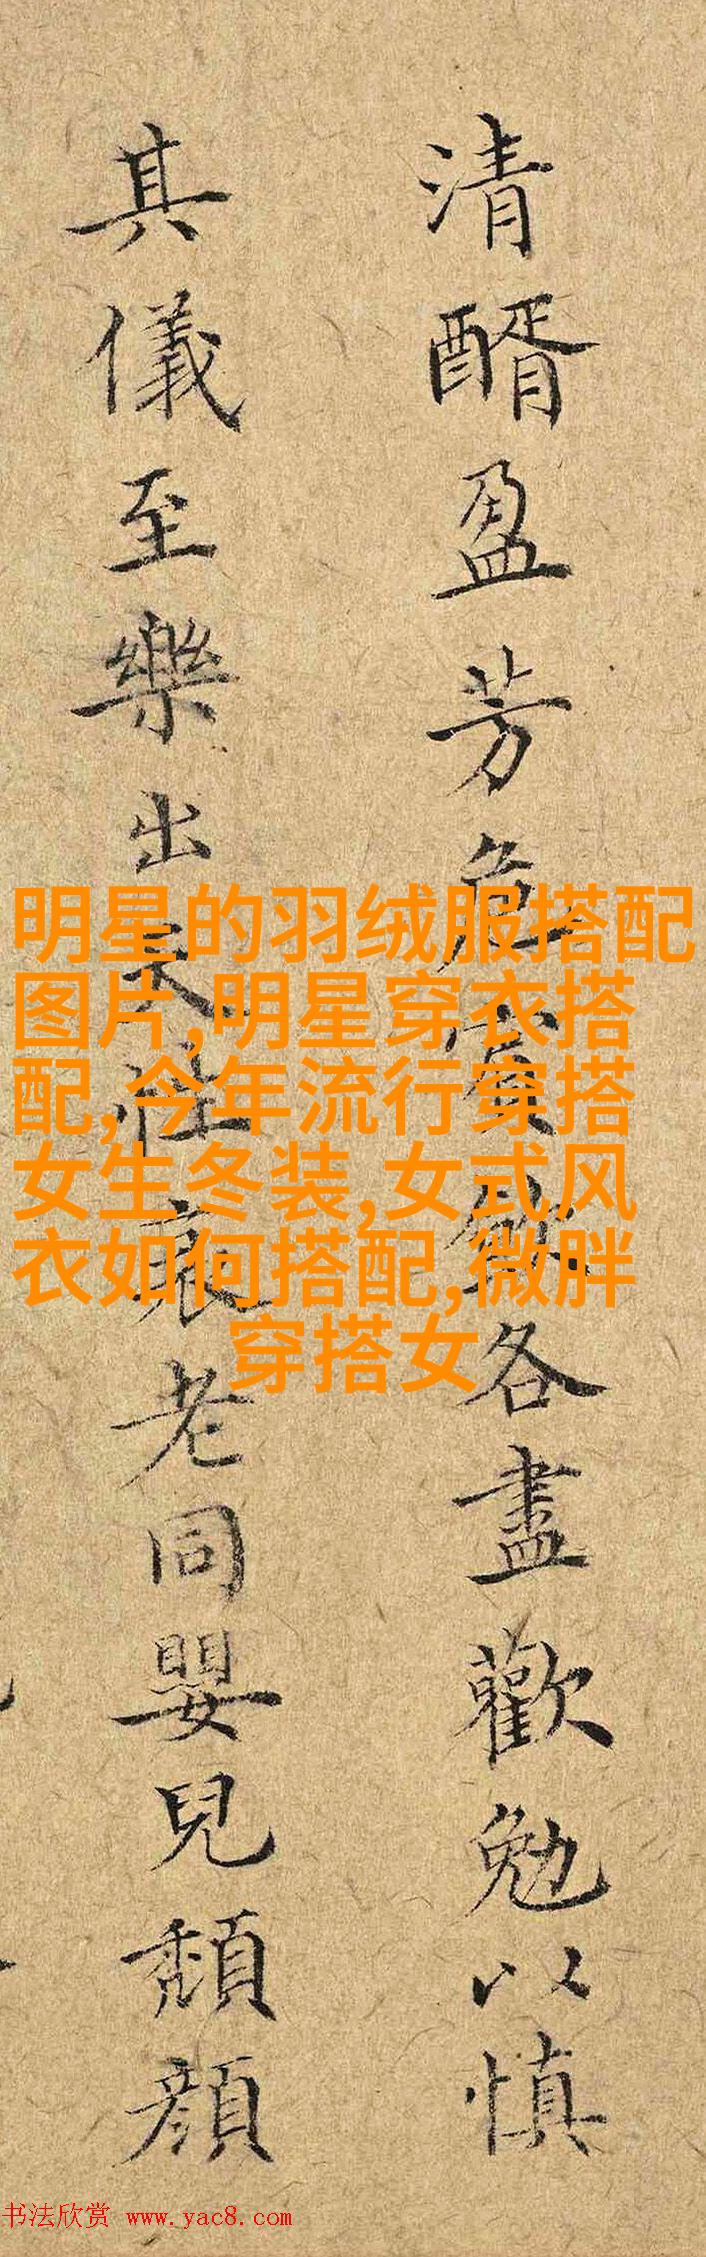 清醑盈芳
各盡歡勉以慎
其儀至樂出
衰老同嬰兒頹顏
明星的羽绒服搭配
图片,明星穿衣搭
配,今年流行穿搭
女生冬装,女式风
衣如何搭配,微胖
穿搭女
书法欣赏 www.yac8.com